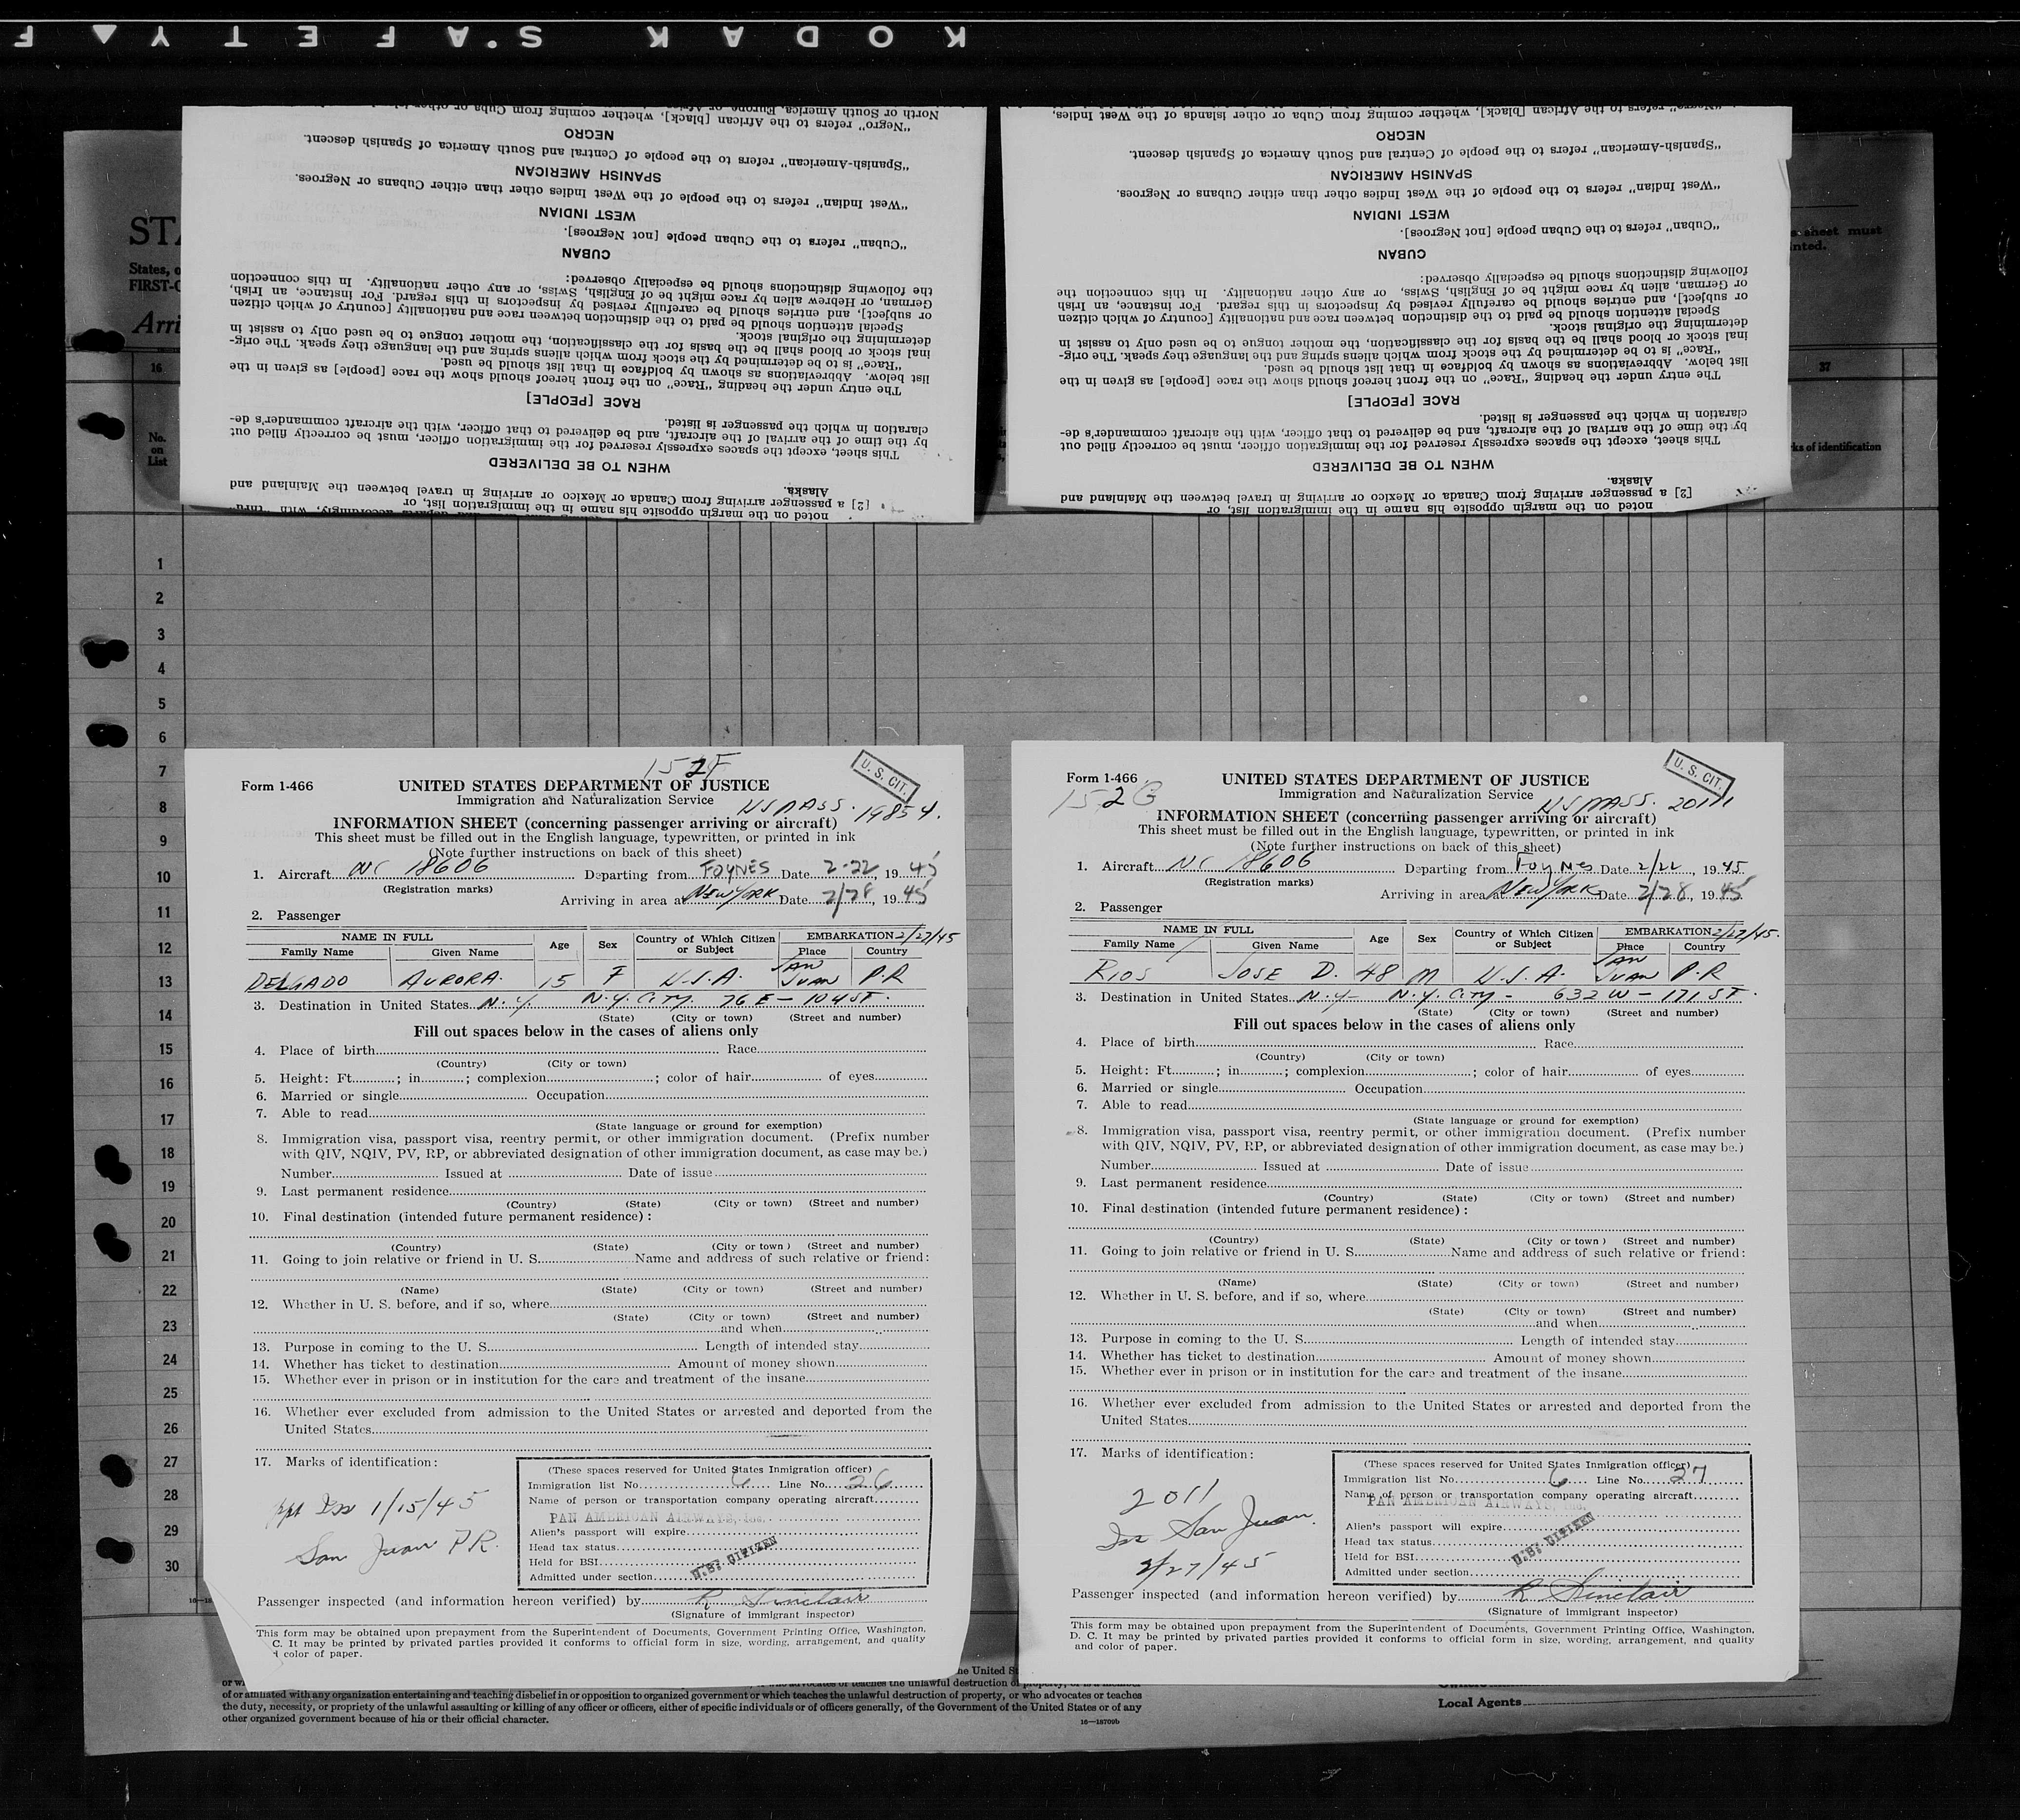 KODAK S'AFETY F
North or South America, Europe or
"Negro" refers to the African [black], whether coming from Cuba or
NEGRO
"Spanish-American" refers to the people of Central and South America of Spanish descent.
SPANISH AMERICAN
"West Indian" refers to the people of the West Indies other than either Cubans or Negroes.
WEST INDIAN
"Cuban" refers to the Cuban people [not Negroes].
CUBAN
the following distinctions should be especially observed:
German, or Hebrew alien by race might be of English, Swiss, or any other nationality. In this connection
or subject], and entries should be carefully revised by inspectors in this regard. For instance, an Irish,
Special attention should be paid to the distinction between race and nationality [country of which citizen
determining the original stock.
inal stock or blood shall be the basis for the classification, the mother tongue to be used only to assist in
"Race" is to be determined by the stock from which aliens spring and the language they speak. The orig-
list below. Abbreviations as shown by boldface in that list should be used.
The entry under the heading "Race" on the front hereof should show the race [people] as given in the
RACE [PEOPLE]
claration in which the passenger is listed.
by the time of the arrival of the aircraft, and be delivered to that officer, with the aircraft commander's de-
This sheet, except the spaces expressly reserved for the immigration officer, must be correctly filled out
WHEN TO BE DELIVERED
Alaska.
[2] a passenger arriving from Canada or Mexico or arriving in travel between the Mainland and
noted on the margin opposite his name in the immigration list, or
"Negro" refers to the African [black], whether coming from Cuba or other islands of the West Indies,
NEGRO
"Spanish-American" refers to the people of Central and South America of Spanish descent.
SPANISH AMERICAN
"West Indian" refers to the people of the West Indies other than either Cubans or Negroes.
WEST INDIAN
"Cuban" refers to the Cuban people [not Negroes].
CUBAN
following distinctions should be especially observed:
or German, alien by race might be of English, Swiss, or any other nationality. In this connection the
or subject], and entries should be carefully revised by inspectors in this regard. For instance, an Irish
Special attention should be paid to the distinction between race and nationality [country of which citizen
determining the original stock.
inal stock or blood shall be the basis for the classification, the mother tongue to be used only to assist in
"Race" is to be determined by the stock from which aliens spring and the language they speak. The orig-
list below. Abbreviations as shown by boldface in that list should be used.
The entry under the heading "Race" on the front hereof should show the race [people] as given in the
RACE [PEOPLE]
claration in which the passenger is listed.
by the time of the arrival of the aircraft, and be delivered to that officer, with the aircraft commander's de-
This sheet, except the spaces expressly reserved for the immigration officer, must be correctly filled out
WHEN TO BE DELIVERED
Alaska.
[2] a passenger arriving from Canada or Mexico or arriving in travel between the Mainland and
noted on the margin opposite his name in the immigration list, or
STA
States, o
FIRST-C
Arri
sheet must
nted.
16
37
No.
on
List
ks of identification
1
2
3
4
5
6
7
8
9
10
11
12
13
14
15
16
17
18
19
20
21
22
23
24
25
26
27
28
29
30
152F
U. S. CIT.
Form 1-466 UNITED STATES DEPARTMENT OF JUSTICE
Immigration and Naturalization Service
US PASS. 19854.
INFORMATION SHEET (concerning passenger arriving or aircraft)
This sheet must be filled out in the English language, typewritten, or printed in ink
(Note further instructions on back of this sheet)
1. Aircraft NC 18606 Departing from FOYNES Date 2-22 1945
(Registration marks)
Arriving in area at NEW YORK Date 2/28, 1945
2. Passenger
NAME IN FULL Age Sex Country of Which Citizen or Subject EMBARKATION 2/27/45
Family Name Given Name Place Country
DELGADO AURORA. 15 F U.S.A. SAN JUAN P.R
3. Destination in United States N.Y. N.Y. CITY 76 E - 104 ST.
(State) (City or town) (Street and number)
Fill out spaces below in the cases of aliens only
4. Place of birth Race
(Country) (City or town)
5. Height: Ft. ; in. ; complexion ; color of hair of eyes
6. Married or single Occupation
7. Able to read
(State language or ground for exemption)
8. Immigration visa, passport visa, reentry permit, or other immigration document. (Prefix number
with QIV, NQIV, PV, RP, or abbreviated designation of other immigration document, as case may be.)
Number Issued at Date of issue
9. Last permanent residence
(Country) (State) (City or town) (Street and number)
10. Final destination (intended future permanent residence) :
(Country) (State) (City or town ) (Street and number)
11. Going to join relative or friend in U. S. Name and address of such relative or friend:
(Name) (State) (City or town) (Street and number)
12. Whether in U. S. before, and if so, where
(State) (City or town) (Street and number)
and when
13. Purpose in coming to the U. S. Length of intended stay
14. Whether has ticket to destination Amount of money shown
15. Whether ever in prison or in institution for the care and treatment of the insane
16. Whether ever excluded from admission to the United States or arrested and deported from the
United States
17. Marks of identification:
ppt Iss 1/15/45
San Juan P.R.
(These spaces reserved for United States Inmigration officer)
Immigration list No. 6 Line No. 26
Name of person or transportation company operating aircraft
PAN AMERICAN AIRWAYS, Inc.
Alien's passport will expire
Head tax status
Held for BSI
Admitted under section
U.S. CITIZEN
Passenger inspected (and information hereon verified) by R Sinclair
(Signature of immigrant inspector)
This form may be obtained upon prepayment from the Superintendent of Documents, Government Printing Office, Washington,
C. It may be printed by privated parties provided it conforms to official form in size, wording, arrangement, and quality
color of paper.
U. S. CIT.
Form 1-466 UNITED STATES DEPARTMENT OF JUSTICE
152G
Immigration and Naturalization Service
US PASS. 2011
INFORMATION SHEET (concerning passenger arriving or aircraft)
This sheet must be filled out in the English language, typewritten, or printed in ink
(Note further instructions on back of this sheet)
1. Aircraft NC 18606 Departing from Foynes Date 2/22, 1945
(Registration marks)
Arriving in area at NEW YORK Date 2/28, 1945
2. Passenger
NAME IN FULL Age Sex Country of Which Citizen or Subject EMBARKATION 2/27/45.
Family Name Given Name Place Country
RIOS JOSE D. 48 M U.S.A. SAN JUAN P.R
3. Destination in United States N.Y- N.Y. CITY - 632 W - 171 ST.
(State) (City or town) (Street and number)
Fill out spaces below in the cases of aliens only
4. Place of birth Race
(Country) (City or town)
5. Height: Ft. ; in. ; complexion ; color of hair of eyes
6. Married or single Occupation
7. Able to read
(State language or ground for exemption)
8. Immigration visa, passport visa, reentry permit, or other immigration document. (Prefix number
with QIV, NQIV, PV, RP, or abbreviated designation of other immigration document, as case may be.)
Number Issued at Date of issue
9. Last permanent residence
(Country) (State) (City or town) (Street and number)
10. Final destination (intended future permanent residence) :
(Country) (State) (City or town ) (Street and number)
11. Going to join relative or friend in U. S. Name and address of such relative or friend:
(Name) (State) (City or town) (Street and number)
12. Whether in U. S. before, and if so, where
(State) (City or town) (Street and number)
and when
13. Purpose in coming to the U. S. Length of intended stay
14. Whether has ticket to destination Amount of money shown
15. Whether ever in prison or in institution for the care and treatment of the insane
16. Whether ever excluded from admission to the United States or arrested and deported from the
United States
17. Marks of identification:
2011
Iss San Juan
2/27/45
(These spaces reserved for United States Inmigration officer)
Immigration list No. 6 Line No. 27
Name of person or transportation company operating aircraft
PAN AMERICAN AIRWAYS, Inc.
Alien's passport will expire
Head tax status
Held for BSI
Admitted under section
U.S. CITIZEN
Passenger inspected (and information hereon verified) by R Sinclair
(Signature of immigrant inspector)
This form may be obtained upon prepayment from the Superintendent of Documents, Government Printing Office, Washington,
D. C. It may be printed by privated parties provided it conforms to official form in size, wording, arrangement, and quality
and color of paper.
the United S
advocates or teaches the unlawful destruction of property,
of or affiliated with any organization entertaining and teaching disbelief in or opposition to organized government or which teaches the unlawful destruction of property, or who advocates or teaches
the duty, necessity, or propriety of the unlawful assaulting or killing of any officer or officers, either of specific individuals or of officers generally, of the Government of the United States or of any
other organized government because of his or their official character.
16—18709b
Local Agents